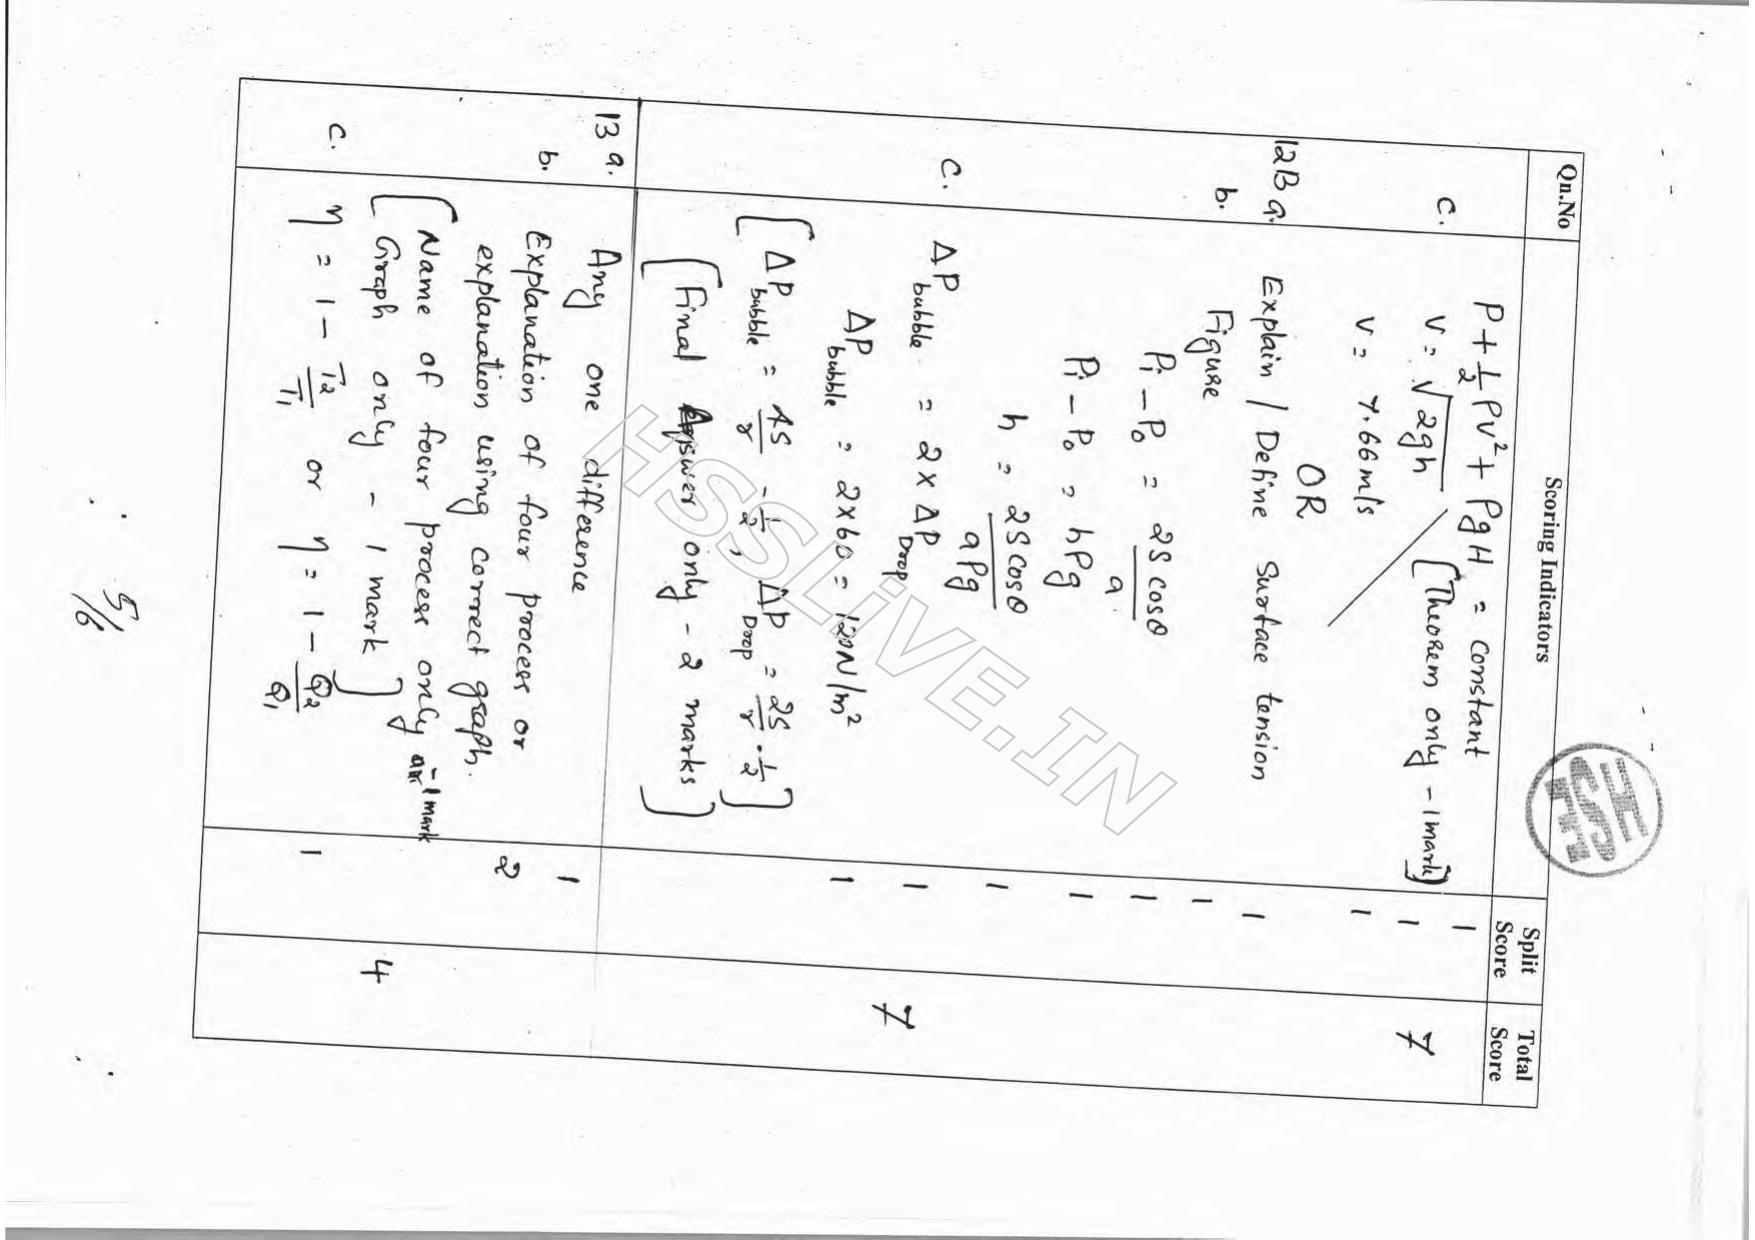 Qn.No Scoring Indicators Split Score Total Score
HSE
P + 1/2 ρv² + ρgH = constant 1
c. v = √2gh [Theorem only - 1 mark] 1 7
v = 7.66 m/s 1
OR
12B a. Explain / Define Surface tension 1
b. Figure 1
Pi - Po = 2S cosθ / a 1
Pi - Po = hρg 1
h = 2S cosθ / aρg 1
c. ΔP bubble = 2 × ΔP Drop 1 7
ΔP bubble = 2×60 = 120 N/m² 1
[ΔP bubble = 4S/r - 1/2, ΔP Drop = 2S/r . 1/2]
[Final Answer only - 2 marks]
13 a. Any one difference 1
b. Explanation of four process or 2
explanation using correct graph.
[Name of four process only - 1 mark
Graph only - 1 mark] 4
c. η = 1 - T2/T1 or η = 1 - Q2/Q1 1
5/6
HSSLiVE.IN